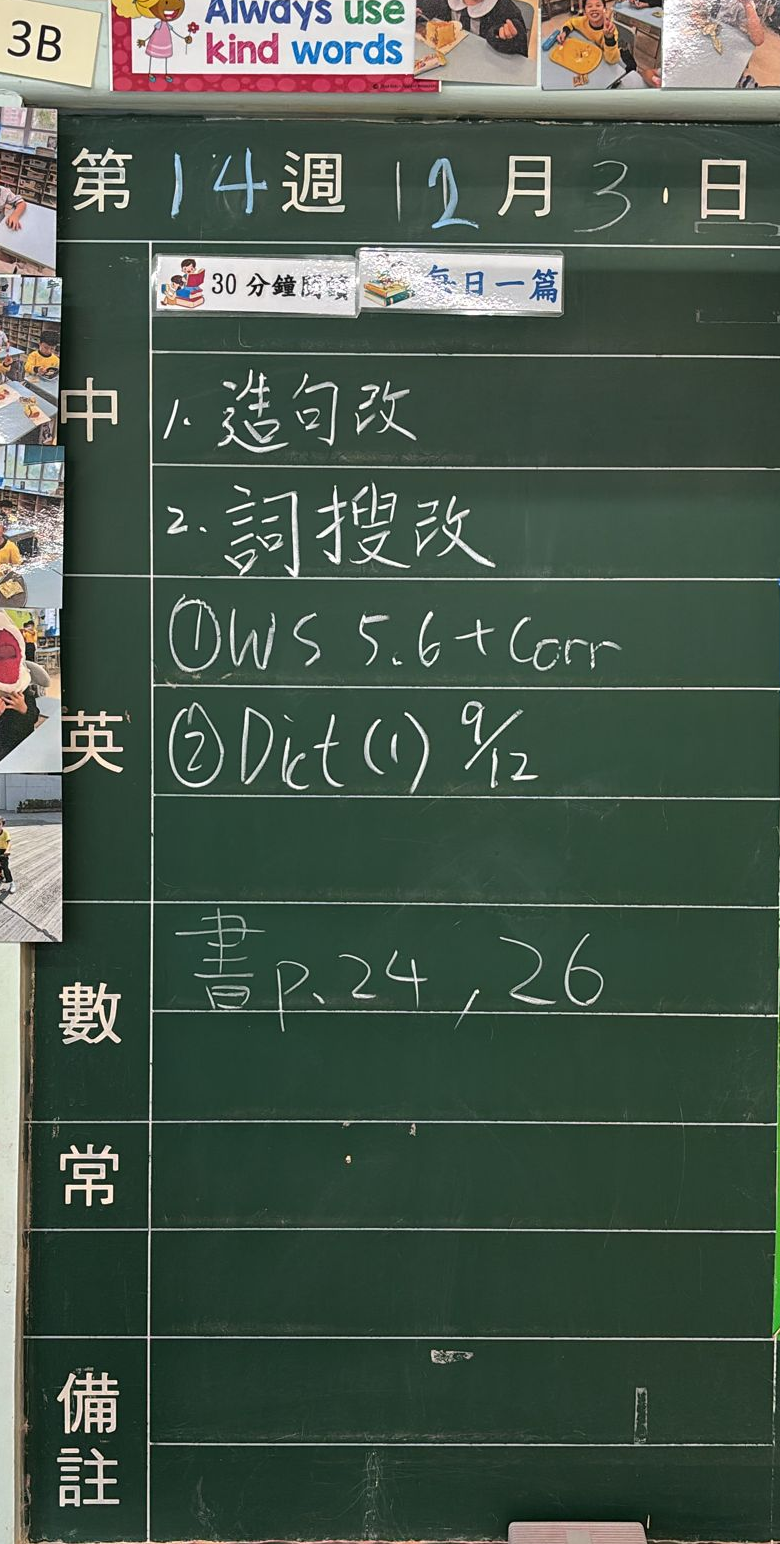 3B
Always use
kind words
第 14 週 12 月 3 日
30 分鐘閱讀 每日一篇
中
1. 造句改
2. 詞搜改
英
① WS 5.6 + Corr
② Dict (1) 9/12
數
書 p. 24, 26
常
備註